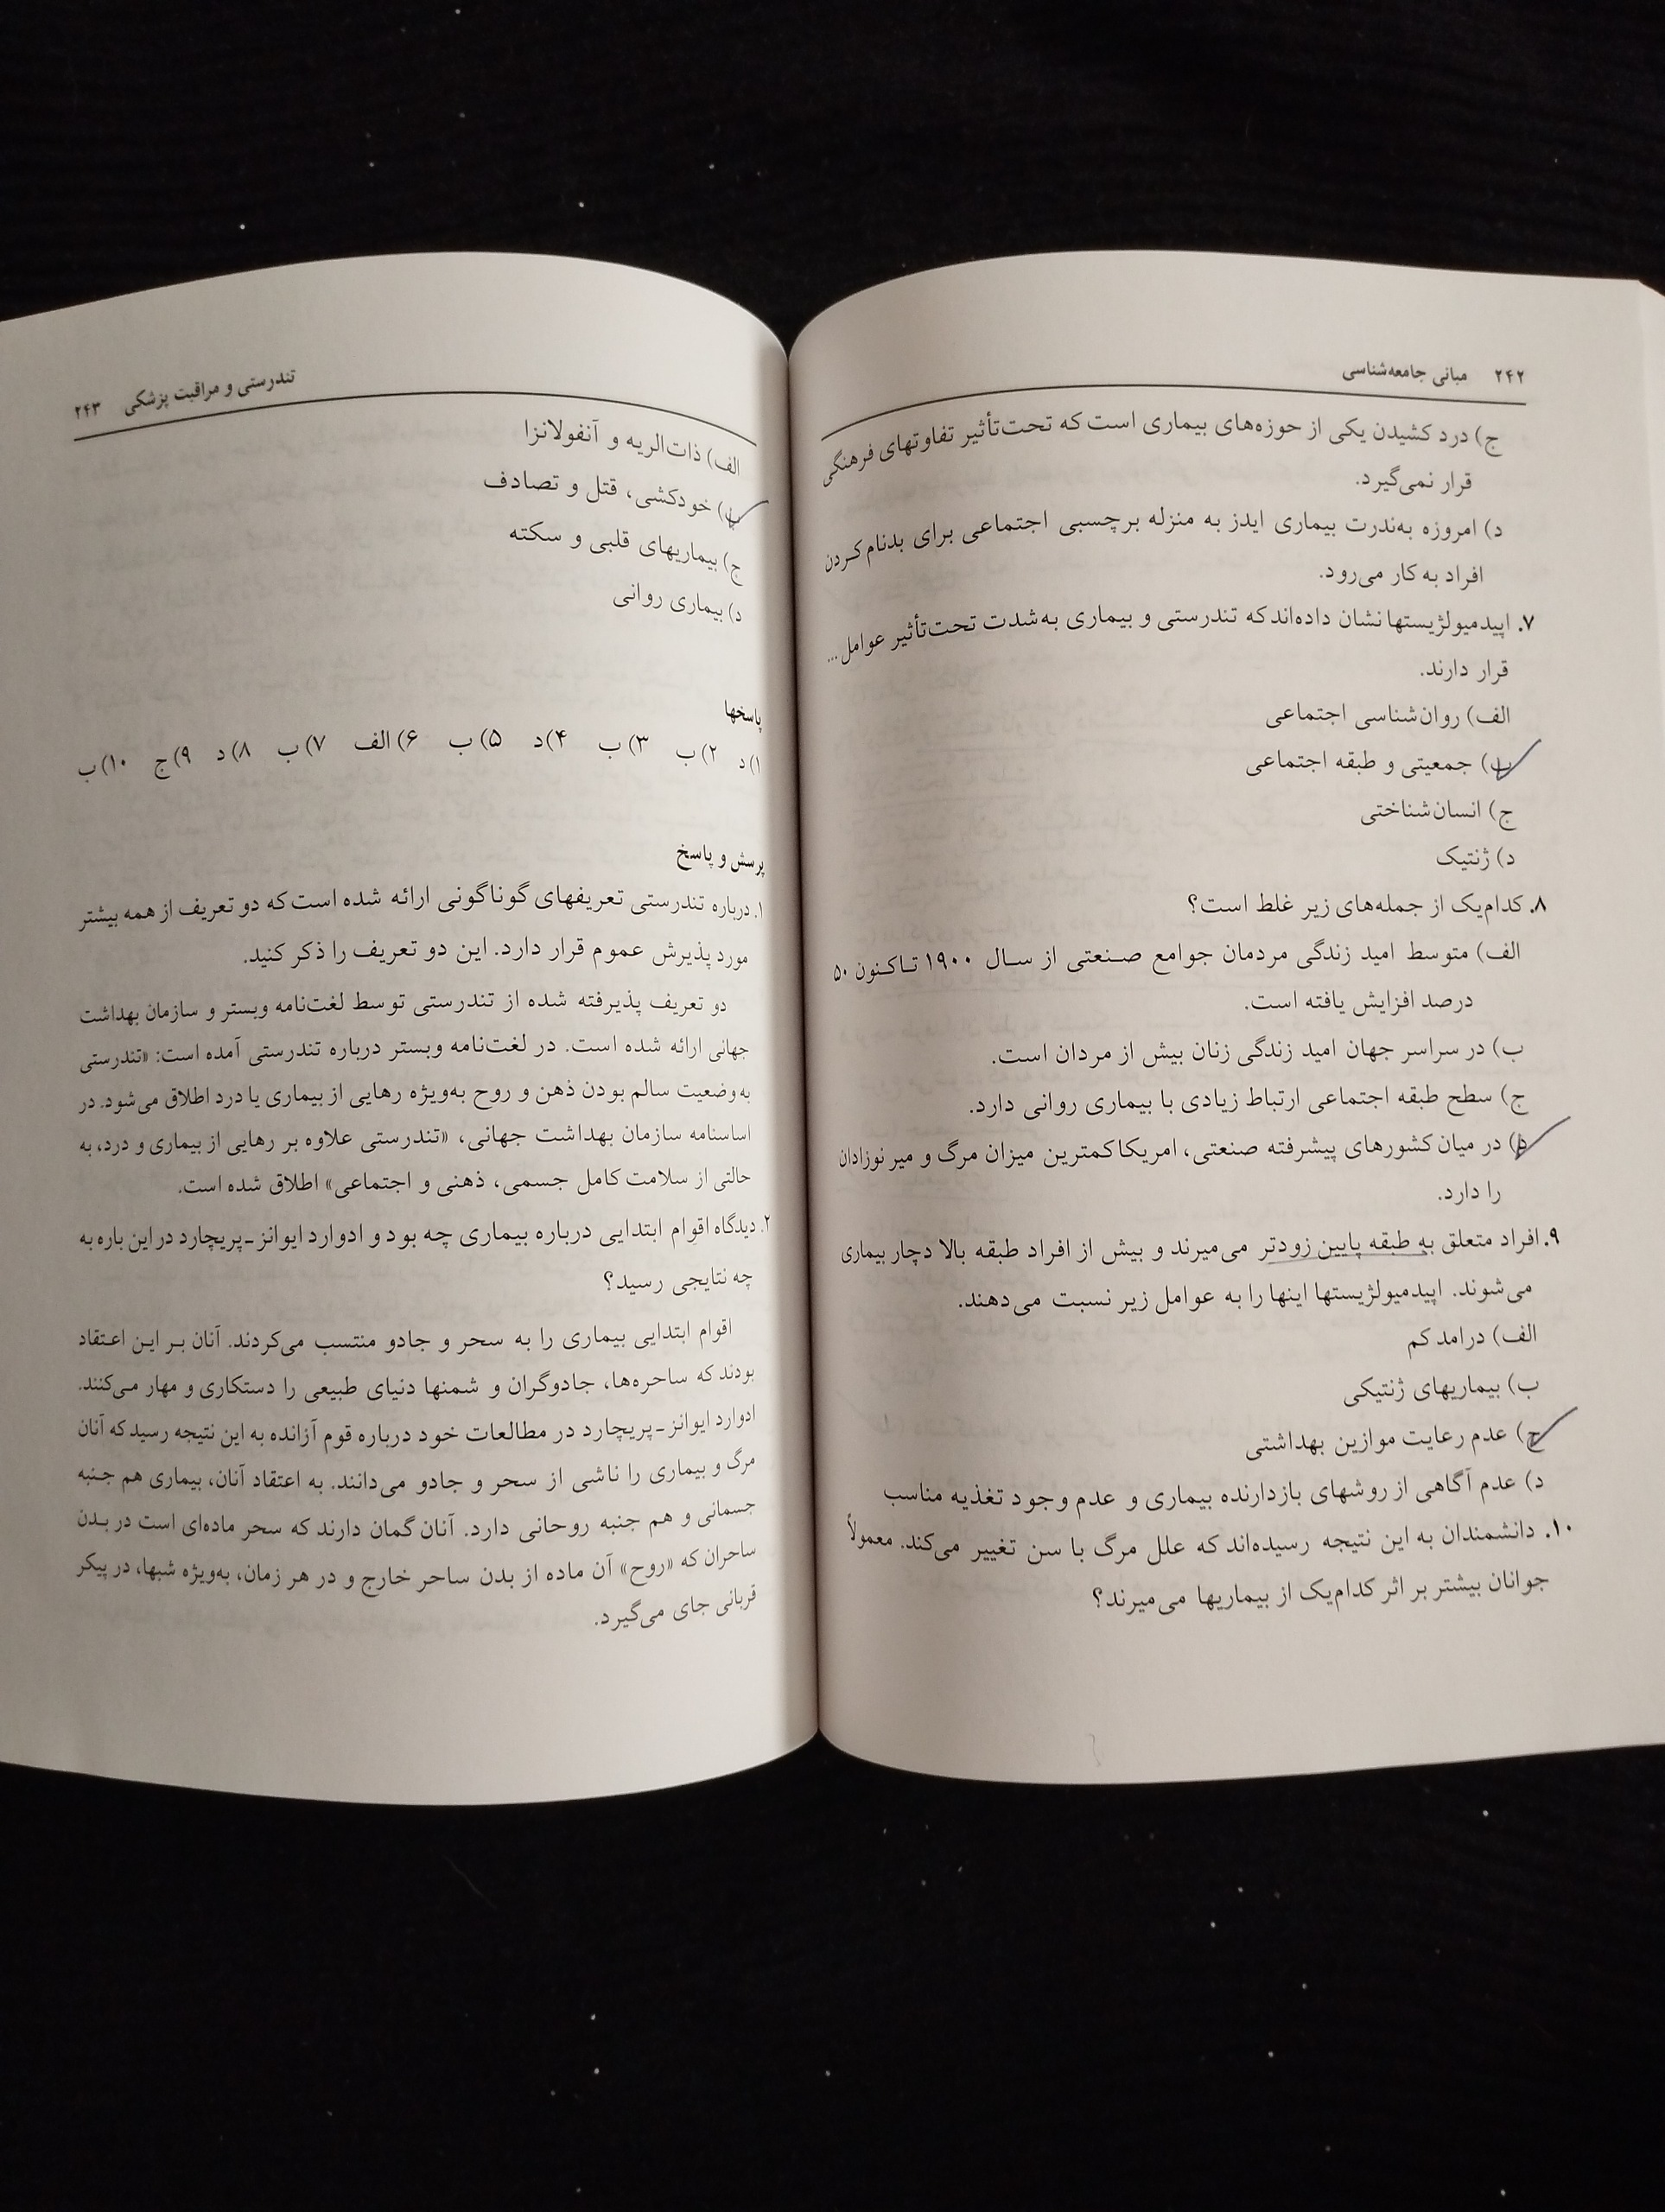 ۲۴۲ مبانی جامعه‌شناسی
ج) درد کشیدن یکی از حوزه‌های بیماری است که تحت‌تأثیر تفاوتهای فرهنگی
قرار نمی‌گیرد.
د) امروزه به‌ندرت بیماری ایدز به منزله برچسبی اجتماعی برای بدنام‌کردن
افراد به کار می‌رود.
۷. اپیدمیولژیستها نشان داده‌اند که تندرستی و بیماری به‌شدت تحت‌تأثیر عوامل...
قرار دارند.
الف) روان‌شناسی اجتماعی
ب) جمعیتی و طبقه اجتماعی
ج) انسان‌شناختی
د) ژنتیک
۸. کدام‌یک از جمله‌های زیر غلط است؟
الف) متوسط امید زندگی مردمان جوامع صنعتی از سال ۱۹۰۰ تاکنون ۵۰
درصد افزایش یافته است.
ب) در سراسر جهان امید زندگی زنان بیش از مردان است.
ج) سطح طبقه اجتماعی ارتباط زیادی با بیماری روانی دارد.
د) در میان کشورهای پیشرفته صنعتی، امریکا کمترین میزان مرگ و میر نوزادان
را دارد.
۹. افراد متعلق به طبقه پایین زودتر می‌میرند و بیش از افراد طبقه بالا دچار بیماری
می‌شوند. اپیدمیولژیستها اینها را به عوامل زیر نسبت می‌دهند.
الف) درامد کم
ب) بیماریهای ژنتیکی
ج) عدم رعایت موازین بهداشتی
د) عدم آگاهی از روشهای بازدارنده بیماری و عدم وجود تغذیه مناسب
۱۰. دانشمندان به این نتیجه رسیده‌اند که علل مرگ با سن تغییر می‌کند. معمولاً
جوانان بیشتر بر اثر کدام‌یک از بیماریها می‌میرند؟
تندرستی و مراقبت پزشکی ۲۴۳
الف) ذات‌الریه و آنفولانزا
ب) خودکشی، قتل و تصادف
ج) بیماریهای قلبی و سکته
د) بیماری روانی
پاسخها
۱) د ۲) ب ۳) ب ۴) د ۵) ب ۶) الف ۷) ب ۸) د ۹) ج ۱۰) ب
پرسش و پاسخ
۱. درباره تندرستی تعریفهای گوناگونی ارائه شده است که دو تعریف از همه بیشتر
مورد پذیرش عموم قرار دارد. این دو تعریف را ذکر کنید.
دو تعریف پذیرفته شده از تندرستی توسط لغت‌نامه وبستر و سازمان بهداشت
جهانی ارائه شده است. در لغت‌نامه وبستر درباره تندرستی آمده است: «تندرستی
به وضعیت سالم بودن ذهن و روح به‌ویژه رهایی از بیماری یا درد اطلاق می‌شود. در
اساسنامه سازمان بهداشت جهانی، «تندرستی علاوه بر رهایی از بیماری و درد، به
حالتی از سلامت کامل جسمی، ذهنی و اجتماعی» اطلاق شده است.
۲. دیدگاه اقوام ابتدایی درباره بیماری چه بود و ادوارد ایوانز-پریچارد در این باره به
چه نتایجی رسید؟
اقوام ابتدایی بیماری را به سحر و جادو منتسب می‌کردند. آنان بر این اعتقاد
بودند که ساحره‌ها، جادوگران و شمنها دنیای طبیعی را دستکاری و مهار می‌کنند.
ادوارد ایوانز-پریچارد در مطالعات خود درباره قوم آزانده به این نتیجه رسید که آنان
مرگ و بیماری را ناشی از سحر و جادو می‌دانند. به اعتقاد آنان، بیماری هم جنبه
جسمانی و هم جنبه روحانی دارد. آنان گمان دارند که سحر ماده‌ای است در بدن
ساحران که «روح» آن ماده از بدن ساحر خارج و در هر زمان، به‌ویژه شبها، در پیکر
قربانی جای می‌گیرد.